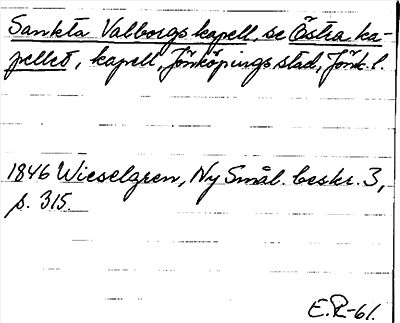 Sankta Valborgs kapell, se Östra ka-
pellet, kapell, Jönköpings stad, Jönk. l.
1846 Wieselgren, Ny Smål. beskr. 3,
s. 315.
E.R-61.